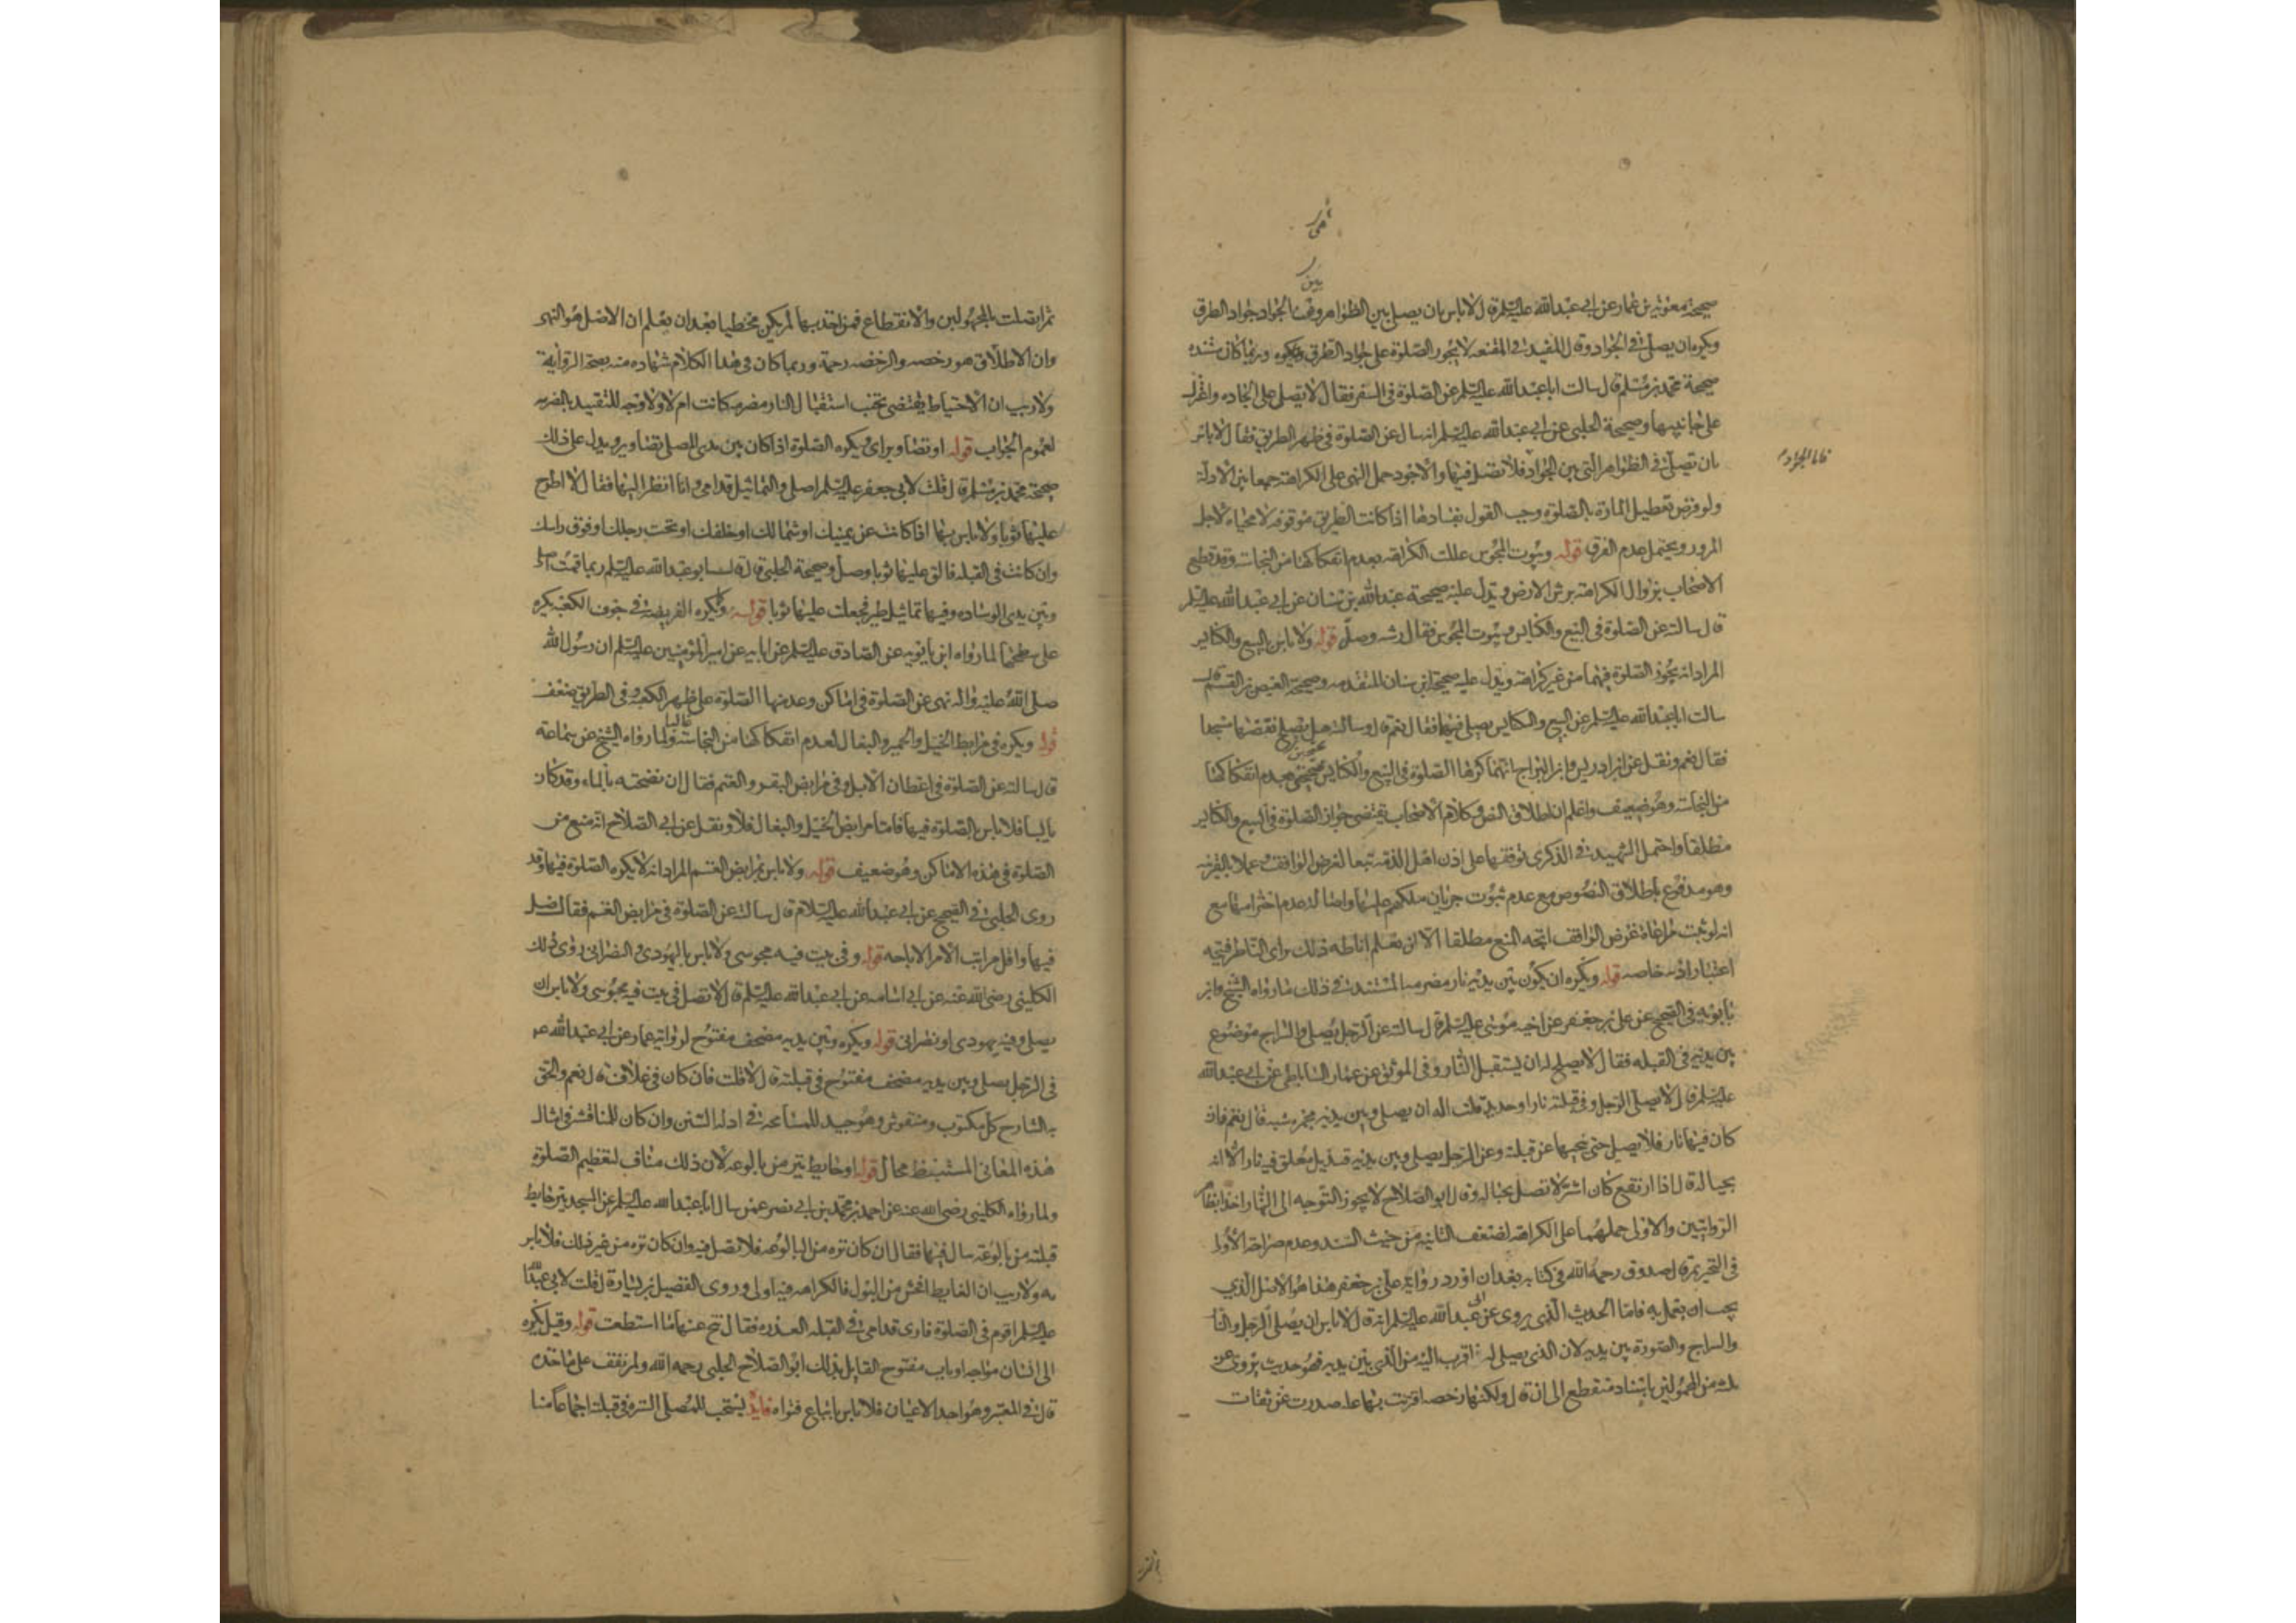 صحيحة معوية بن عمار عن ابي عبدالله عليه السلم قال لا باس بان يصلي بين الظواهر وهي الجواد جواد الطرق
ويكره ان يصلي في الجواد وقال المفيد في المقنعه لا يجوز الصلوة على جواد الطرق
صحيحة محمد بن مسلم قال سالت ابا عبدالله عليه السلم عن الصلوة في السفر فقال لا تصل على الجاده واعتزل
على جانبيها وصحيحة الحلبي عن ابي عبدالله عليه السلم انه سال عن الصلوة في ظهر الطريق فقال لا باس
بان تصلي في الظواهر التي بين الجواد فلا تصل فيها والاجود حمل النهي على الكراهة جمعا بين الادلة
فاما الجواد
ولو فرض تعطيل المارة بالصلوة وجب القول بفسادها اذا كانت الطريق موقوفه لا محياه لاجل
المرور ويحتمل عدم الفرق قوله وبيوت المجوس عللت الكراهة بعدم انفكاكها من النجاسة وقد قطع
الاصحاب بزوال الكراهة برش الارض ويدل عليه صحيحة عبدالله بن سنان عن ابي عبدالله عليه السلم
قال سالته عن الصلوة في البيع والكنايس وبيوت المجوس فقال رشه وصل قوله ولا باس بالبيع والكنايس
المراد انه يجوز الصلوة فيهما من غير كراهة ويدل عليه صحيحة ابن سنان المتقدمه وصحيحة العيص بن القسم قال
سالت ابا عبدالله عليه السلم عن البيع والكنايس يصلى فيها فقال نعم قال وسالته هل يصلح نقضها مسجدا
فقال نعم ونقل عن ابن ادريس وابن البراج انهما كرها الصلوة في البيع والكنايس محتجين بعدم انفكاكها
من النجاسة وهو ضعيف واعلم ان اطلاق النص وكلام الاصحاب يقتضي جواز الصلوة في البيع والكنايس
مطلقا واحتمل الشهيد في الذكرى توقفها على اذن اهل الذمة تبعا لغرض الواقف وعملا بالقرينه
وهو مدفوع باطلاق النصوص مع عدم ثبوت جريان ملكهم عليها واصالة عدم احترامها مع
انه لو ثبت مراعاة غرض الواقف اتجه المنع مطلقا الا ان يعلم اناطه ذلك براى الناظر فيتجه
اعتبار اذنه خاصه قوله ويكره ان يكون بين يديه نار مضرمه المستند في ذلك ما رواه الشيخ وابن
بابويه في الصحيح عن علي بن جعفر عن اخيه موسى عليه السلم قال سالته عن الرجل يصلي والسراج موضوع
بين يديه في القبله فقال لا يصلح له ان يستقبل النار وفي الموثق عن عمار الساباطي عن ابي عبدالله
عليه السلم قال لا يصلي الرجل وفي قبلته نار او حديد قلت اله ان يصلي وبين يديه مجمر شبه قال نعم فان
كان فيها نار فلا يصلي حتى ينحيها عن قبلته وعن الرجل يصلي وبين يديه قنديل معلق فيه نار الا انه
بحياله قال اذا ارتفع كان اشر لا تصل بحياله وقال ابو الصلاح لا يجوز التوجه الى النار اخذا بظاهر
الروايتين والاولى حملهما على الكراهة لضعف الثانية من حيث السند وعدم صراحة الاولى
في التحريم قال الصدوق رحمه الله في كتابه بعد ان اورد رواية علي بن جعفر هذا هو الاصل الذي
يجب ان يعمل به فاما الحديث الذي يروى عن ابي عبدالله عليه السلم انه قال لا باس ان يصلي الرجل والنار
والسراج والصورة بين يديه لان الذي يصلي له اقرب اليه من الذي بين يديه فهو حديث يروى عن
ثلثه من المجهولين باسناد منقطع الى ان قال ولكنها رخصه اقترنت بها علة صدرت عن ثقات
ثم اتصلت بالمجهولين والانقطاع فمن اخذ بها لم يكن مخطيا بعد ان يعلم ان الاصل هو النهي
وان الاطلاق هو رخصه والرخصه رحمة وربما كان في هذا الكلام شهاده منه بصحة الرواية
ولا ريب ان الاحتياط يقتضي تجنب استقبال النار مضرمه كانت ام لا ولا وجه للتقييد بالمضرمه
لعموم الجواب قوله او تصاوير اى ويكره الصلوة اذا كان بين يدى المصلى تصاوير ويدل على ذلك
صحيحة محمد بن مسلم قال قلت لابي جعفر عليه السلم اصلي والتماثيل قدامي وانا انظر اليها فقال لا اطرح
عليها ثوبا ولا باس بها اذا كانت عن يمينك او شمالك او خلفك او تحت رجلك او فوق راسك
وان كانت في القبله فالق عليها ثوبا وصل وصحيحة الحلبي قال قال ابو عبدالله عليه السلم ربما قمت اصلي
وبين يدى الوساده وفيها تماثيل طير فجعلت عليها ثوبا قوله ويكره الفريضة في جوف الكعبه يكره
على سطحها لما رواه ابن بابويه عن الصادق عليه السلم عن ابايه عن امير المؤمنين عليه السلم ان رسول الله
صلى الله عليه واله نهى عن الصلوة في اماكن وعد منها الصلوة على ظهر الكعبه وفي الطريق ضعف
قوله ويكره في مرابط الخيل والحمير والبغال لعدم انفكاكها من النجاسة غالبا ولما رواه الشيخ عن سماعه
قال سالته عن الصلوة في اعطان الابل وفي مرابض البقر والغنم فقال ان نضحته بالماء وقد كان
يابسا فلا باس بالصلوة فيها فاما مرابض الخيل والبغال فلا ونقل عن ابي الصلاح انه منع من
الصلوة في هذه الاماكن وهو ضعيف قوله ولا باس بمرابض الغنم المراد انه لا يكره الصلوة فيها وقد
روى الحلبي في الصحيح عن ابي عبدالله عليه السلام قال سالته عن الصلوة في مرابض الغنم فقال صل
فيها واقل مراتب الامر الاباحه قوله وفي بيت فيه مجوسي ولا باس باليهودي والنصراني روى ذلك
الكليني رضي الله عنه عن ابي اسامه عن ابي عبدالله عليه السلم قال لا تصل في بيت فيه مجوسي ولا باس ان
يصلي وفيه يهودى او نصراني قوله ويكره وبين يديه مصحف مفتوح لرواية عمار عن ابي عبدالله ع
في الرجل يصلي وبين يديه مصحف مفتوح في قبلته قال لا قلت فان كان في غلاف قال نعم والحق
به الشارح كل مكتوب ومنقوش وهو جيد للمسامحة في ادله السنن وان كان للمناقشه في امثال
هذه المعاني المستنبطه مجال قوله او حايط ينز من بالوعه لان ذلك مناف لتعظيم الصلوة
ولما رواه الكليني رضى الله عنه عن احمد بن محمد بن ابي نصر عمن سال ابا عبدالله عليه السلم عن المسجد ينز حايط
قبلته من بالوعة يبال فيها فقال ان كان نزه من البالوعه فلا تصل فيه وان كان نزه من غير ذلك فلا باس
به ولا ريب ان الغايط افحش من البول فالكراهه فيه اولى وروى الفضيل بن يسار قال قلت لابي عبدالله
عليه السلم اقوم في الصلوة فارى قدامي في القبله العذره فقال تنح عنها ما استطعت قوله وقيل يكره
الى انسان مواجه او باب مفتوح القايل بذلك ابو الصلاح الحلبي رحمه الله ولم نقف على ماخذه
قال في المعتبر وهو احد الاعيان فلا باس باتباع فتواه فايدة يستحب للمصلى الستره في قبلته اجماعا منا